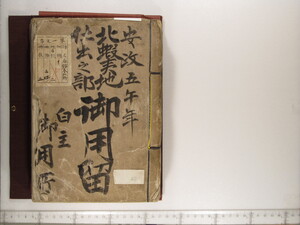 安政五午年
北蝦夷地
仕出之部
御用留
白主
御用所